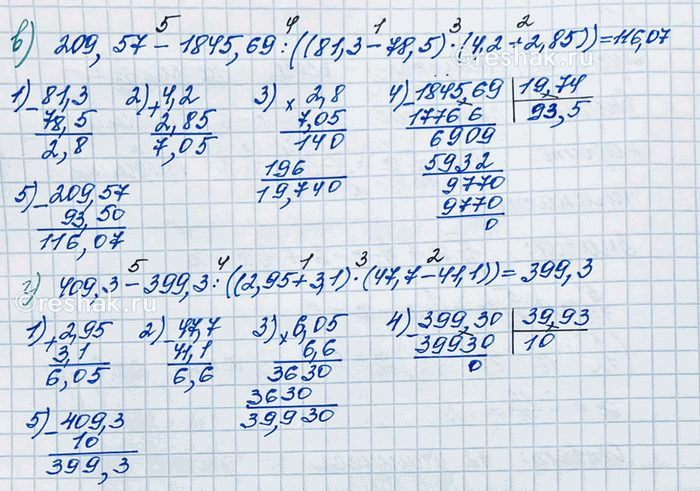 в) 209,57 - 1845,69 : ((81,3 - 78,5) · (4,2 + 2,85)) = 116,07
5 4 1 3 2
1) - 81,3
78,5
2,8
2) + 4,2
2,85
7,05
3) × 2,8
7,05
140
196
19,740
4) - 1845,69 | 19,74
1776 6 93,5
6909
5932
9770
9770
0
5) - 209,57
93,50
116,07
г) 409,3 - 399,3 : ((2,95 + 3,1) · (47,7 - 41,1)) = 399,3
5 4 1 3 2
1) + 2,95
3,1
6,05
2) - 47,7
41,1
6,6
3) × 6,05
6,6
3630
3630
39,930
4) - 399,30 | 39,93
39930 10
0
5) - 409,3
10
399,3